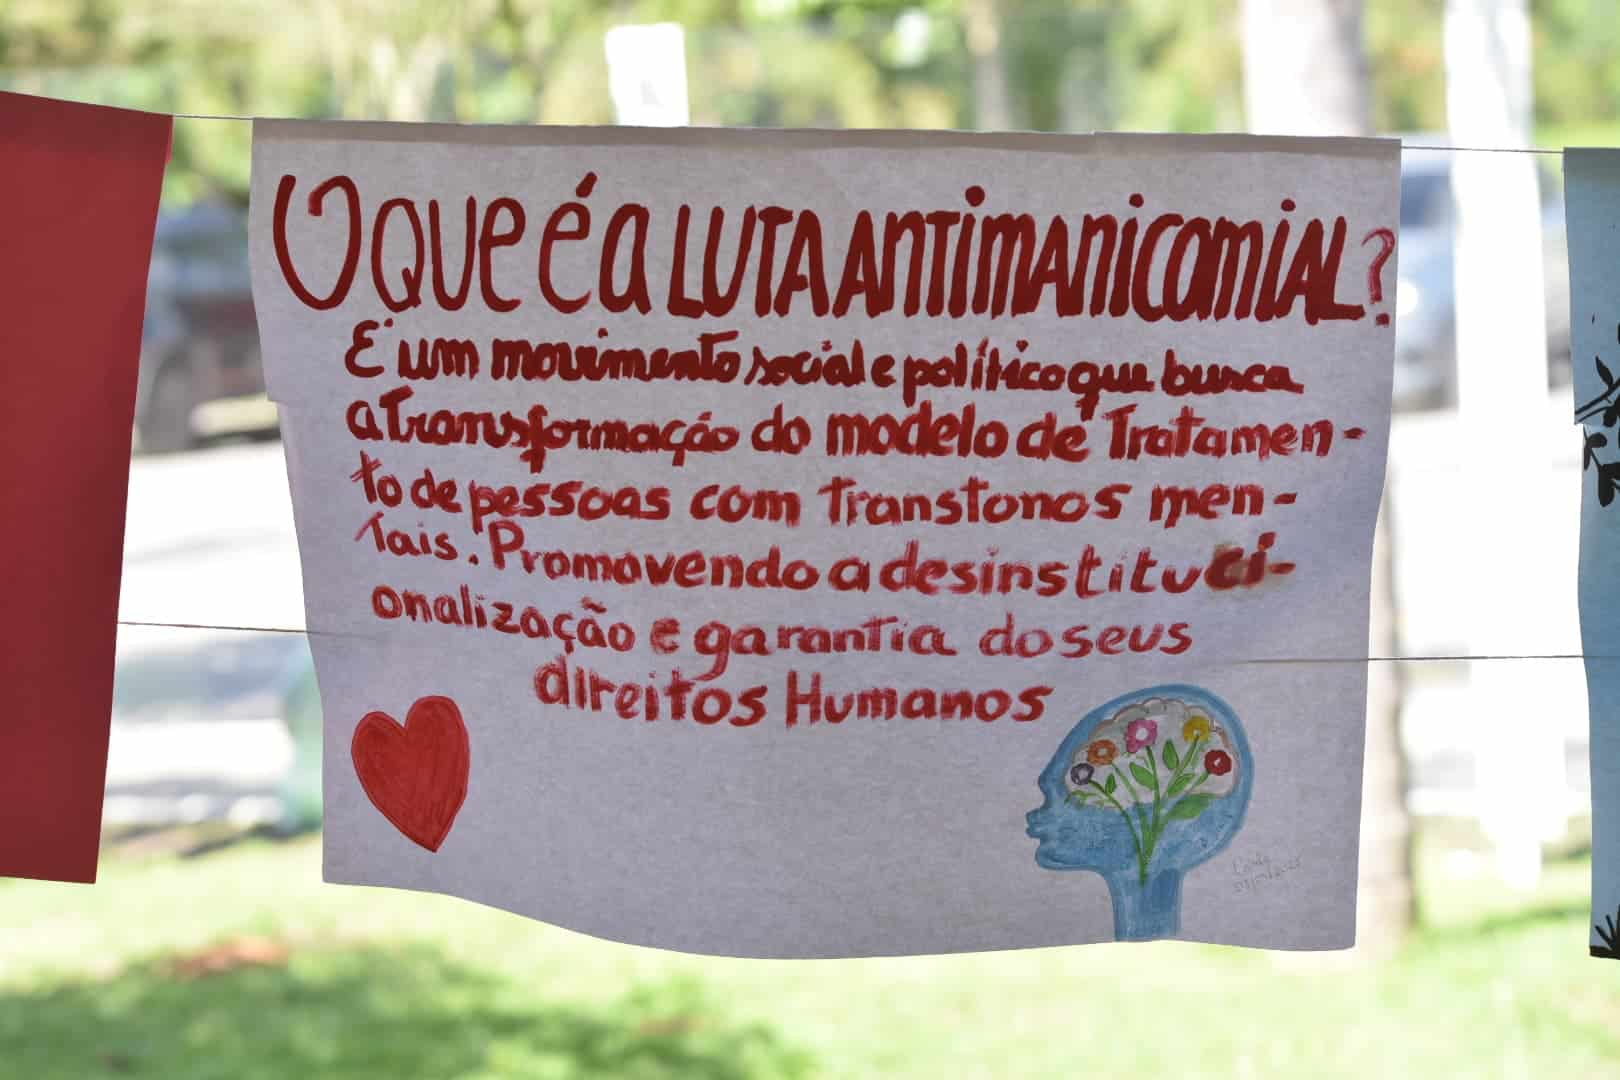 O QUE é a LUTA ANTIMANICOMIAL?
É um movimento social e político que busca
a Transformação do modelo de Tratamen-
to de pessoas com Transtonos men-
Tais. Promovendo a desinstituci-
onalização e garantia do seus
direitos Humanos